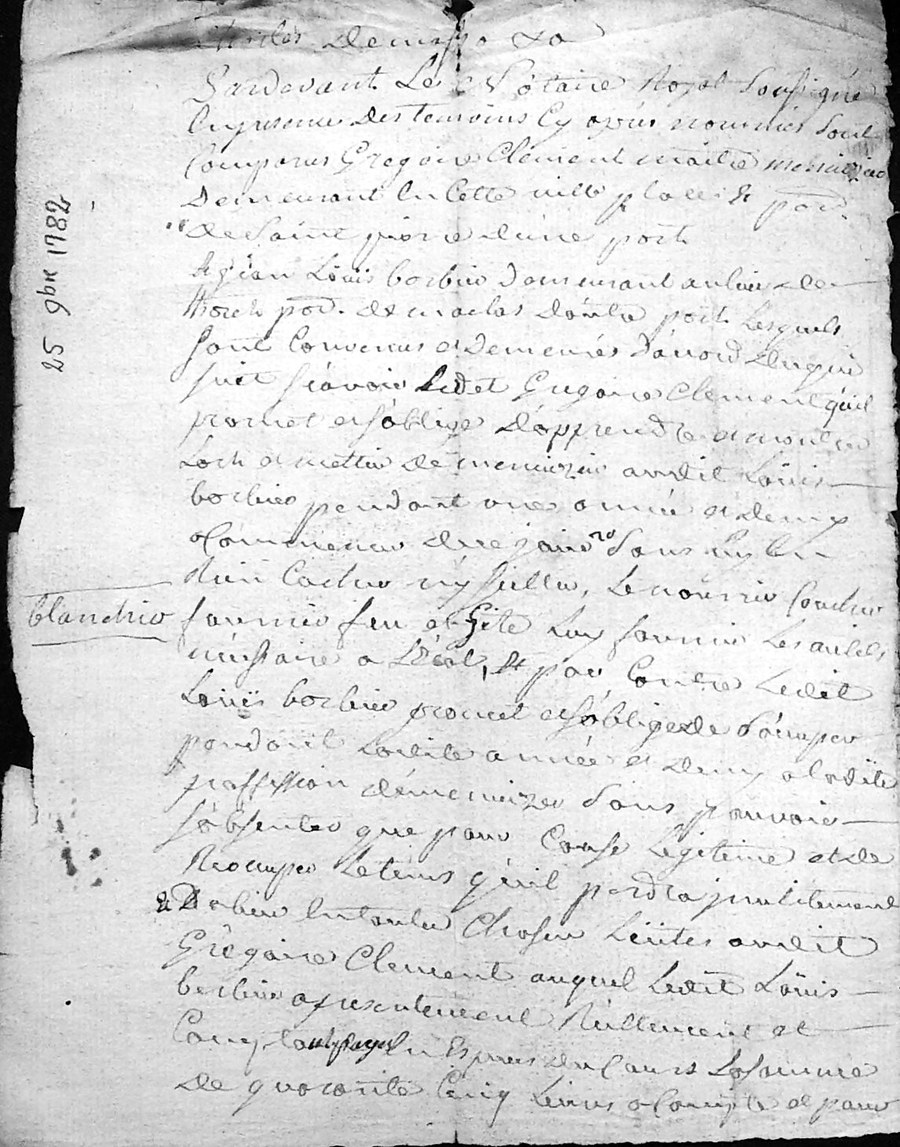 Pardevant Le Notaire Royal Soussigné
En presence des temoins Cy apres nommés Sont
Comparus Gregoire Clement maitre menuizier
Demeurant En Cette ville place & par.
de Saint pierre d'une part
Et jean Louis borbier demeurant au lieu de
par. de maclas d'autre part Lesquels
Sont Convenus et Demeurés d'acord de ce qui
Suit sçavoir Ledit Gregoire Clement qu'il
promet et s'oblige d'apprendre et montrer
L'art et mettier de menuizier audit Loüis
borbier pendant une année et demy
a Commencer de ce jour Sans luy En
Rien Cacher n'y Seller, Le nourrir Coucher
blanchir
fournir feu et Gite Luy fournir Les outils
necessaire a L'Etat, Et par Contre Ledit
Loüis borbier promet et s'oblige de s'ocuper
pendant Ladite année et demy a ladite
proffession de menuizier Sans pouvoir
s'absenter que pour Cause Legitime et de
Recouper Le tems qu'il perdra inutilement
& D'obeir En toutes Choses Licites audit
Grégoire Clement auquel Ledit Loüis
borbier a presentement Réellement et
Comptant payé En Espèces du Cours La Somme
De quarante Cinq Livres a Compte et pour
25 9bre 1782